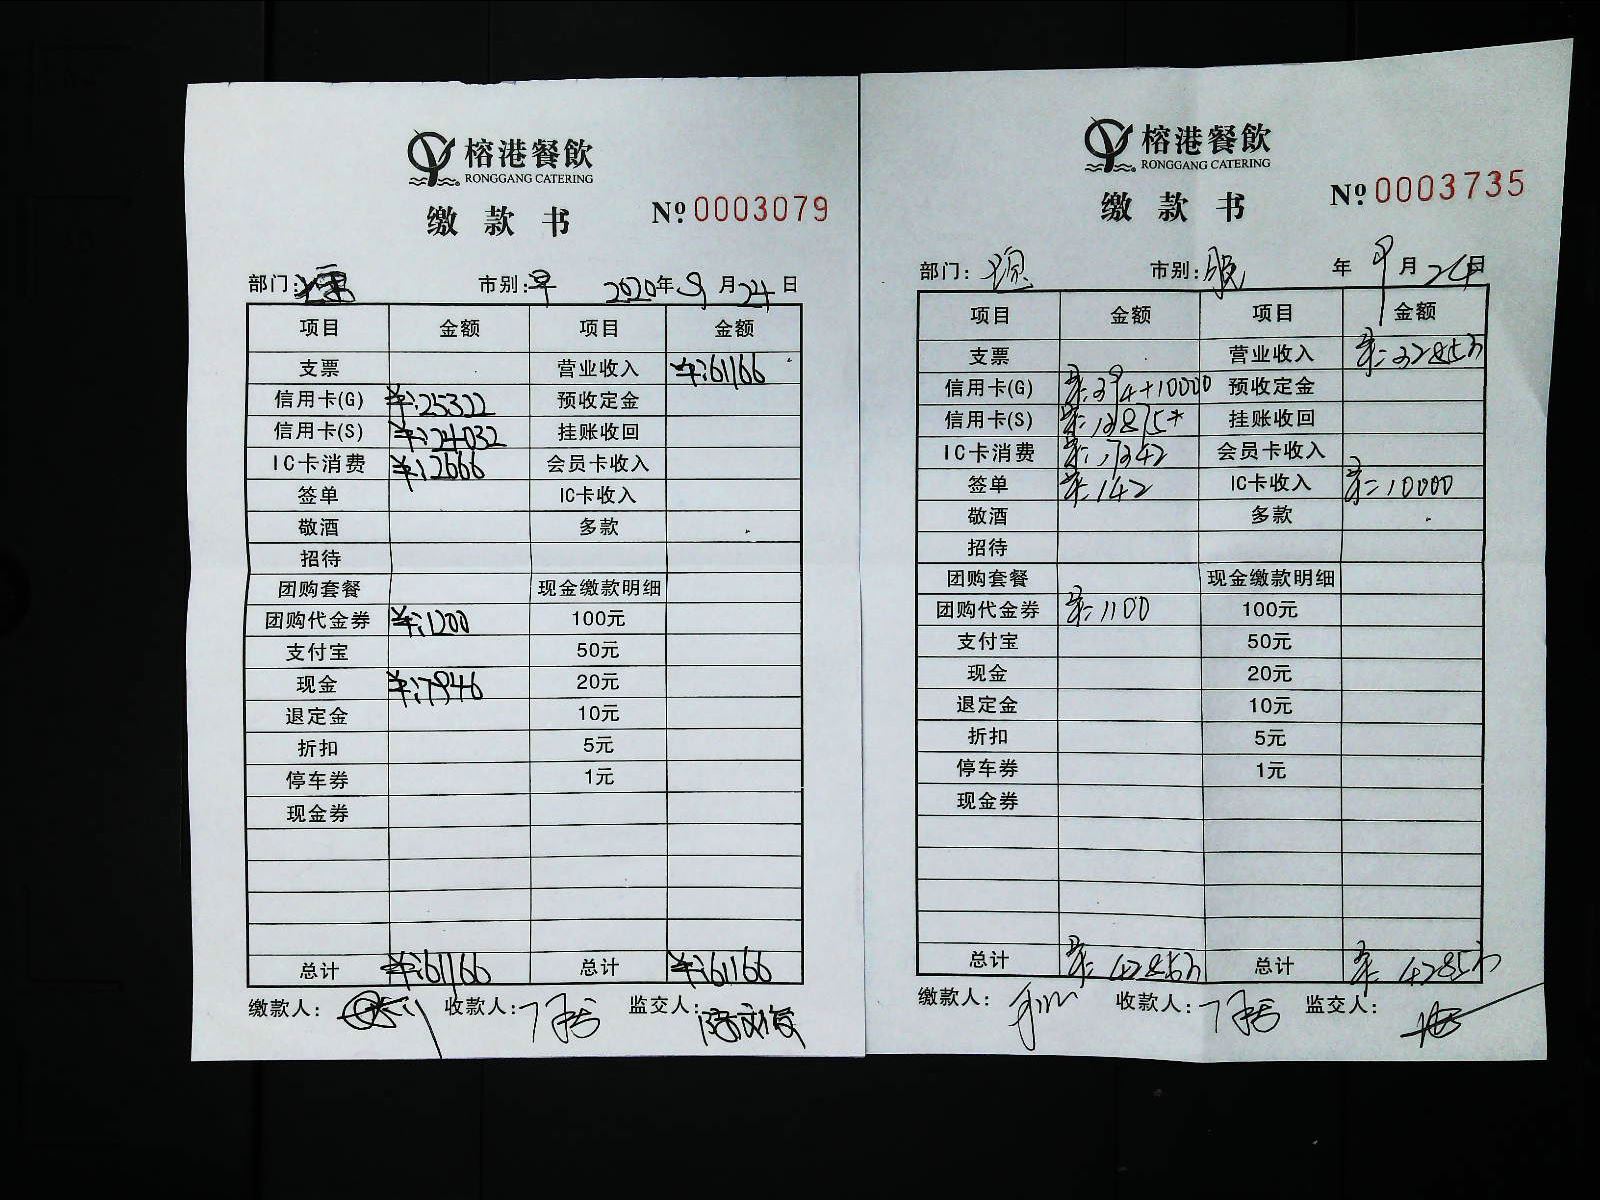 榕港餐飲
RONGGANG CATERING
缴款书
№ 0003079
部门: 市别: 早 2020年9月24日
项目 金额 项目 金额
支票 营业收入 ¥:61166
信用卡(G) ¥:25322 预收定金
信用卡(S) ¥:24032 挂账收回
IC卡消费 ¥:2666 会员卡收入
签单 IC卡收入
敬酒 多款
招待
团购套餐 现金缴款明细
团购代金券 ¥:1200 100元
支付宝 50元
现金 ¥:7946 20元
退定金 10元
折扣 5元
停车券 1元
现金券
总计 ¥:61166 总计 ¥:61166
缴款人: 收款人: 监交人:
榕港餐飲
RONGGANG CATERING
缴款书
№ 0003735
部门: 市别: 年9月24日
项目 金额 项目 金额
支票 营业收入
信用卡(G) 预收定金
信用卡(S) 挂账收回
IC卡消费 会员卡收入
签单 142 IC卡收入 10000
敬酒 多款
招待
团购套餐 现金缴款明细
团购代金券 1100 100元
支付宝 50元
现金 20元
退定金 10元
折扣 5元
停车券 1元
现金券
总计 总计
缴款人: 收款人: 监交人: